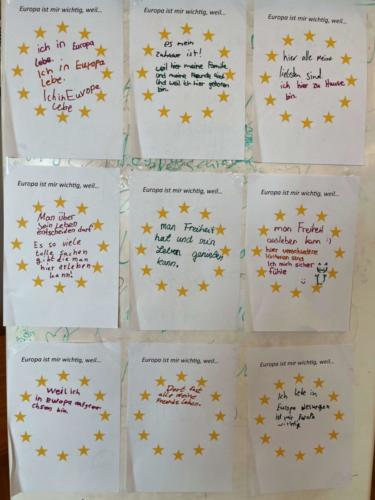 Europa ist mir wichtig, weil...
ich in Europa
lebe.
Ich in Europa
Lebe.
Ich in Europa
Lebe
Europa ist mir wichtig, weil...
es mein
Zuhause ist!
weil hier meine Familie
und meine Freunde sind
und weil ich hier geboren
bin.
Europa ist mir wichtig, weil...
hier alle meine
liebsten sind
ich hier zu Hause
bin.
Europa ist mir wichtig, weil...
Man über
sein Leben
entscheiden darf
Es so viele
tolle sachen
gibt die man
hier erleben
kann!
Europa ist mir wichtig, weil...
man Freiheit
hat und sein
Leben genießen
kann.
Europa ist mir wichtig, weil...
man Freiheit
ausleben kann :)
hier verschiedene
Kulturen sind
Ich mich sicher
fühle
Europa ist mir wichtig, weil...
Weil ich
in Europa aufgewa-
chsen bin.
Europa ist mir wichtig, weil...
Dort fast
alle meine
Freunde leben.
Europa ist mir wichtig, weil...
Ich lebe in
Europa deswegen
ist mir Europa
wichtig